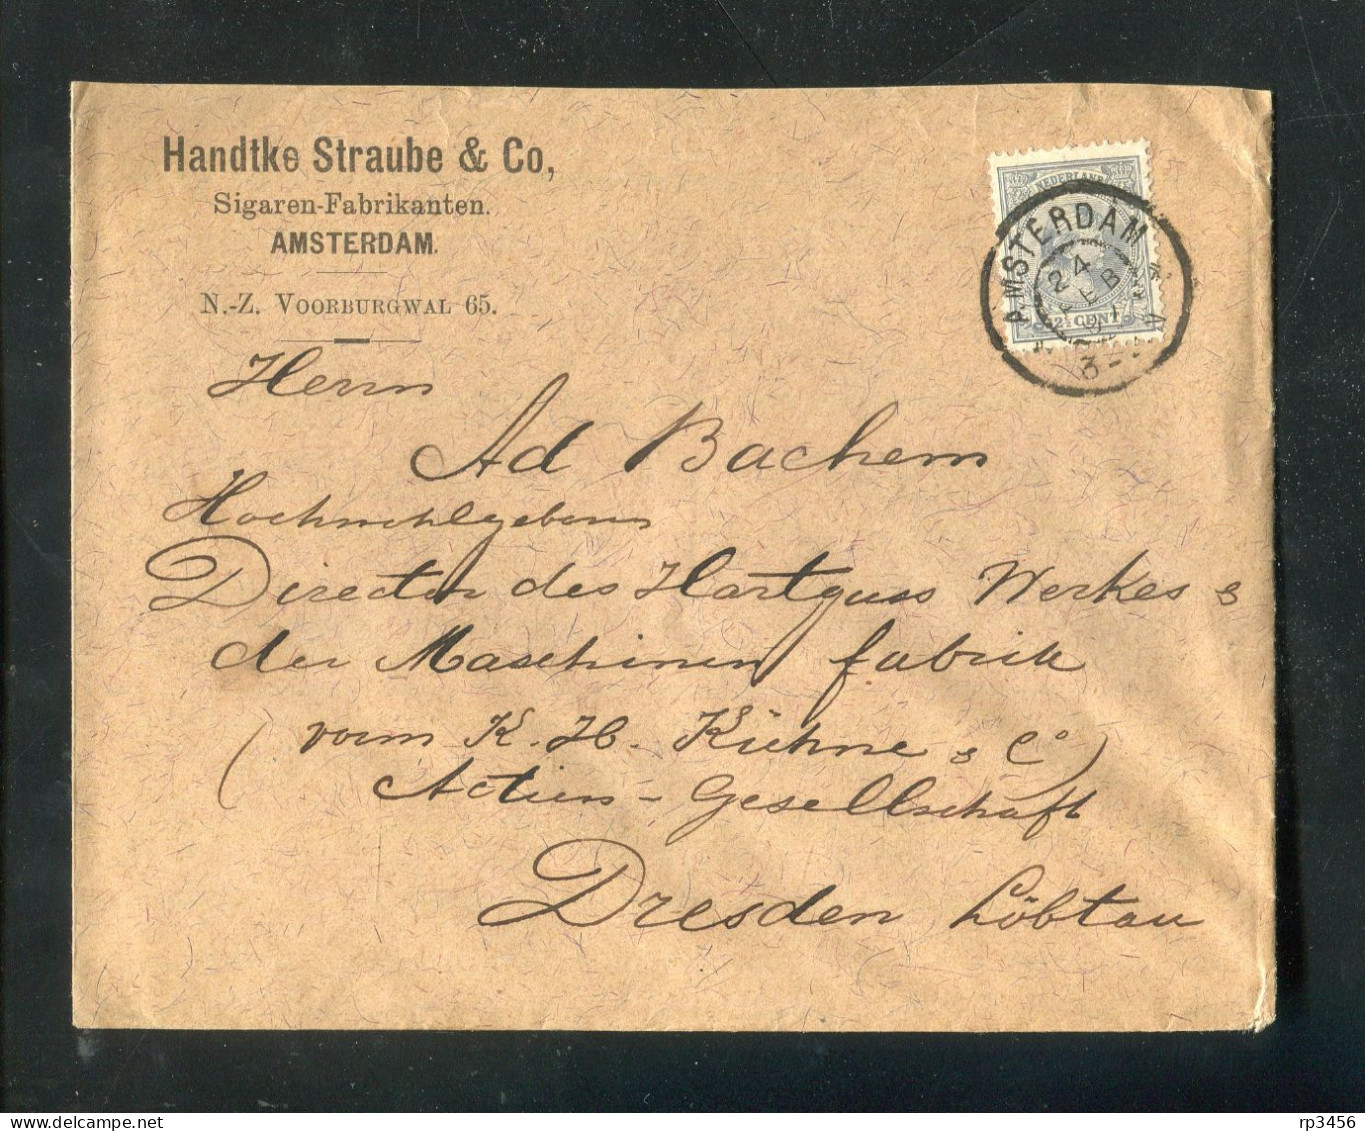 Handtke Straube & Co,
Sigaren-Fabrikanten.
AMSTERDAM.
N.-Z. VOORBURGWAL 65.
NEDERLAND
12½ CENT
AMSTERDAM
24
FEB
91
3-
Herrn
Ad Bachem
Hochwohlgeboren
Director des Hartguss Werkes &
der Maschinen fabrik
(vorm K. H. Kühne & Co)
Actien-Gesellschaft
Dresden Löbtau
rp3456